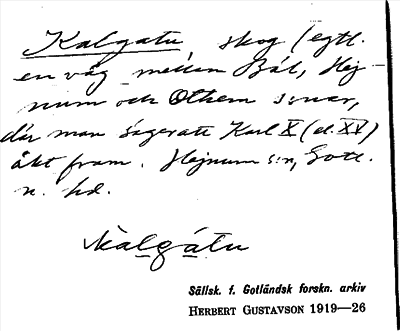 Kalgatu, skog (egtl.
en väg mellan Bäl, Hej-
num och Othem s:nar,
där man säger att Karl X (el. XV)
åkt fram. Hejnum s:n, Gotl.
n. hd.
kalgátu
Sällsk. f. Gotländsk forskn. arkiv
HERBERT GUSTAVSON 1919—26